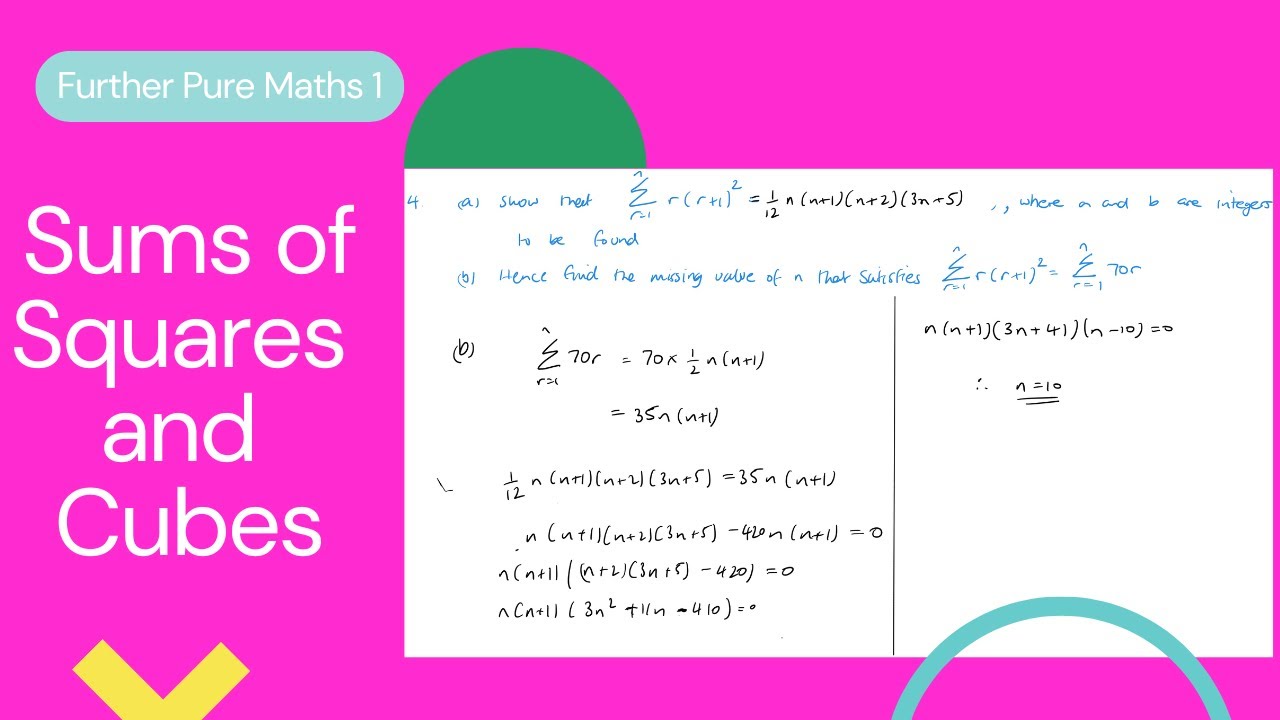 Further Pure Maths 1
Sums of
Squares
and
Cubes
4. (a) Show that \sum_{r=1}^{n} r(r+1)^2 = \frac{1}{12} n(n+1)(n+2)(3n+5) , , where a and b are integers
to be found
(b) Hence find the missing value of n that satisfies \sum_{r=1}^{n} r(r+1)^2 = \sum_{r=1}^{n} 70r
(b) \sum_{r=1}^{n} 70r = 70 × \frac{1}{2} n(n+1)
= 35n(n+1)
\frac{1}{12} n(n+1)(n+2)(3n+5) = 35n(n+1)
n(n+1)(n+2)(3n+5) - 420n(n+1) = 0
n(n+1)((n+2)(3n+5) - 420) = 0
n(n+1)(3n² + 11n - 410) = 0
n(n+1)(3n+41)(n-10) = 0
∴ n = 10